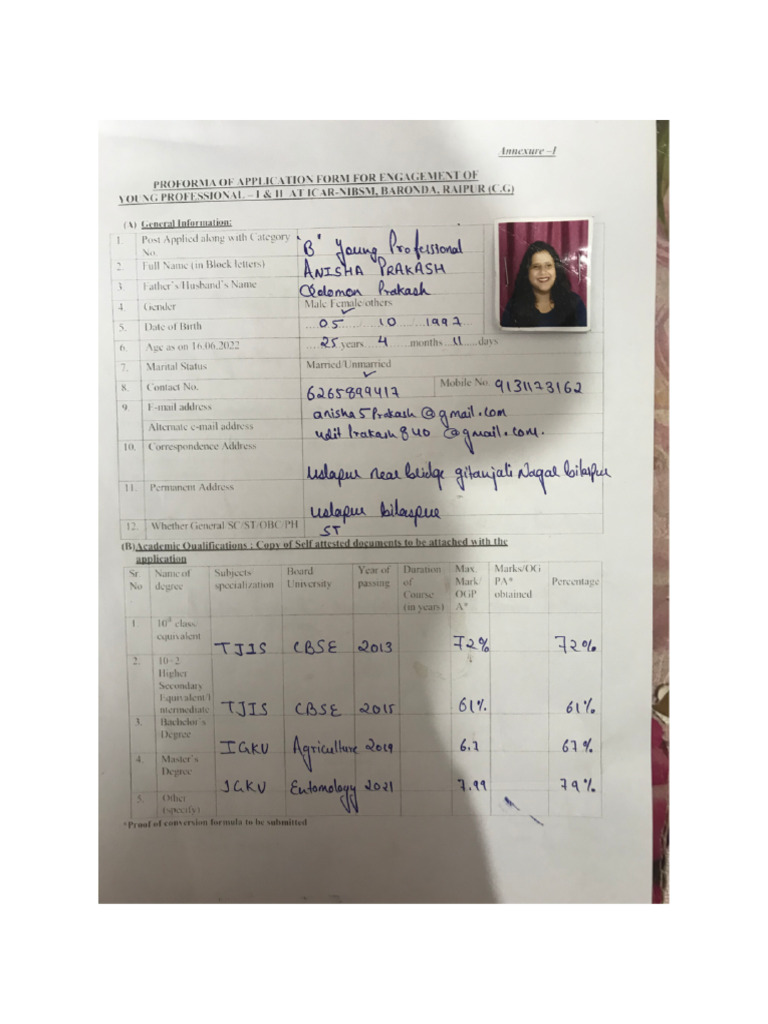 Annexure –I
PROFORMA OF APPLICATION FORM FOR ENGAGEMENT OF
YOUNG PROFESSIONAL – I & II AT ICAR-NIBSM, BARONDA, RAIPUR (C.G)
(A) General Information:
1. Post Applied along with Category No. "B" Young Professional
2. Full Name (in Block letters) ANISHA PRAKASH
3. Father's/Husband's Name Solomon Prakash
4. Gender Male/Female/others ✓
5. Date of Birth 05 10 1997
6. Age as on 16.06.2022 25 years 4 months 11 days
7. Marital Status Married/Unmarried ✓
8. Contact No. 6265899417 Mobile No. 9131173162
9. E-mail address anisha5Prakash@gmail.com
Alternate e-mail address udit Prakash840@gmail.com.
10. Correspondence Address Uslapur near bridge gitanjali Nagar bilaspur
11. Permanent Address Uslapur bilaspur
12. Whether General/SC/ST/OBC/PH ST
(B)Academic Qualifications : Copy of Self attested documents to be attached with the
application
Sr. No. Name of degree Subjects specialization Board University Year of passing Duration of Course (in years) Max. Mark/ OGPA* Marks/OGPA* obtained Percentage
1. 10th class equivalent TJIS CBSE 2013 72% 72%
2. 10+2 Higher Secondary Equivalent/Intermediate TJIS CBSE 2015 61% 61%
3. Bachelor's Degree IGKV Agriculture 2019 6.7 67%
4. Master's Degree IGKV Entomology 2021 7.99 79%
5. Other (specify)
*Proof of conversion formula to be submitted